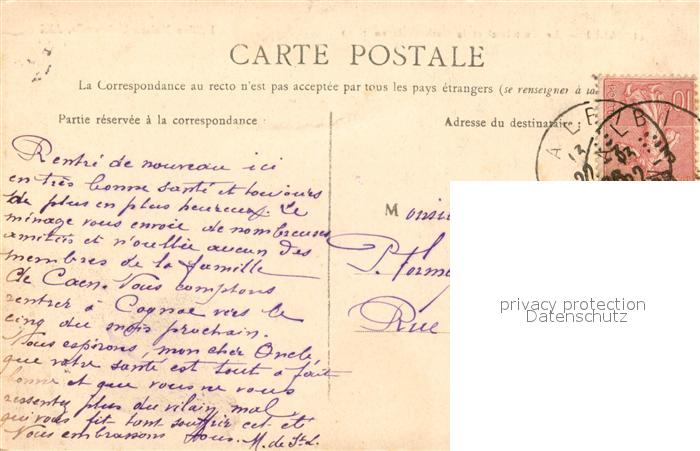 CARTE POSTALE
La Correspondance au recto n'est pas acceptée par tous les pays étrangers (se renseigner à la
Partie réservée à la correspondance
Adresse du destinataire
ALBI
ALBI
10
Rentré de nouveau ici
en très bonne santé et toujours
de plus en plus heureux. Le
ménage vous envoie de nombreuses
amitiés et n'oublie aucun des
membres de la famille
de Caen. Nous comptons
rentrer à Cognac vers le
cinq du mois prochain.
Nous espérons, mon cher Oncle,
que votre santé est tout à fait
bonne et que vous ne vous
ressentez plus du vilain mal
qui vous fit tant souffrir cet été
Nous embrassons tous. M. de St. L.
Monsieu
P.
Rue
privacy protection
Datenschutz